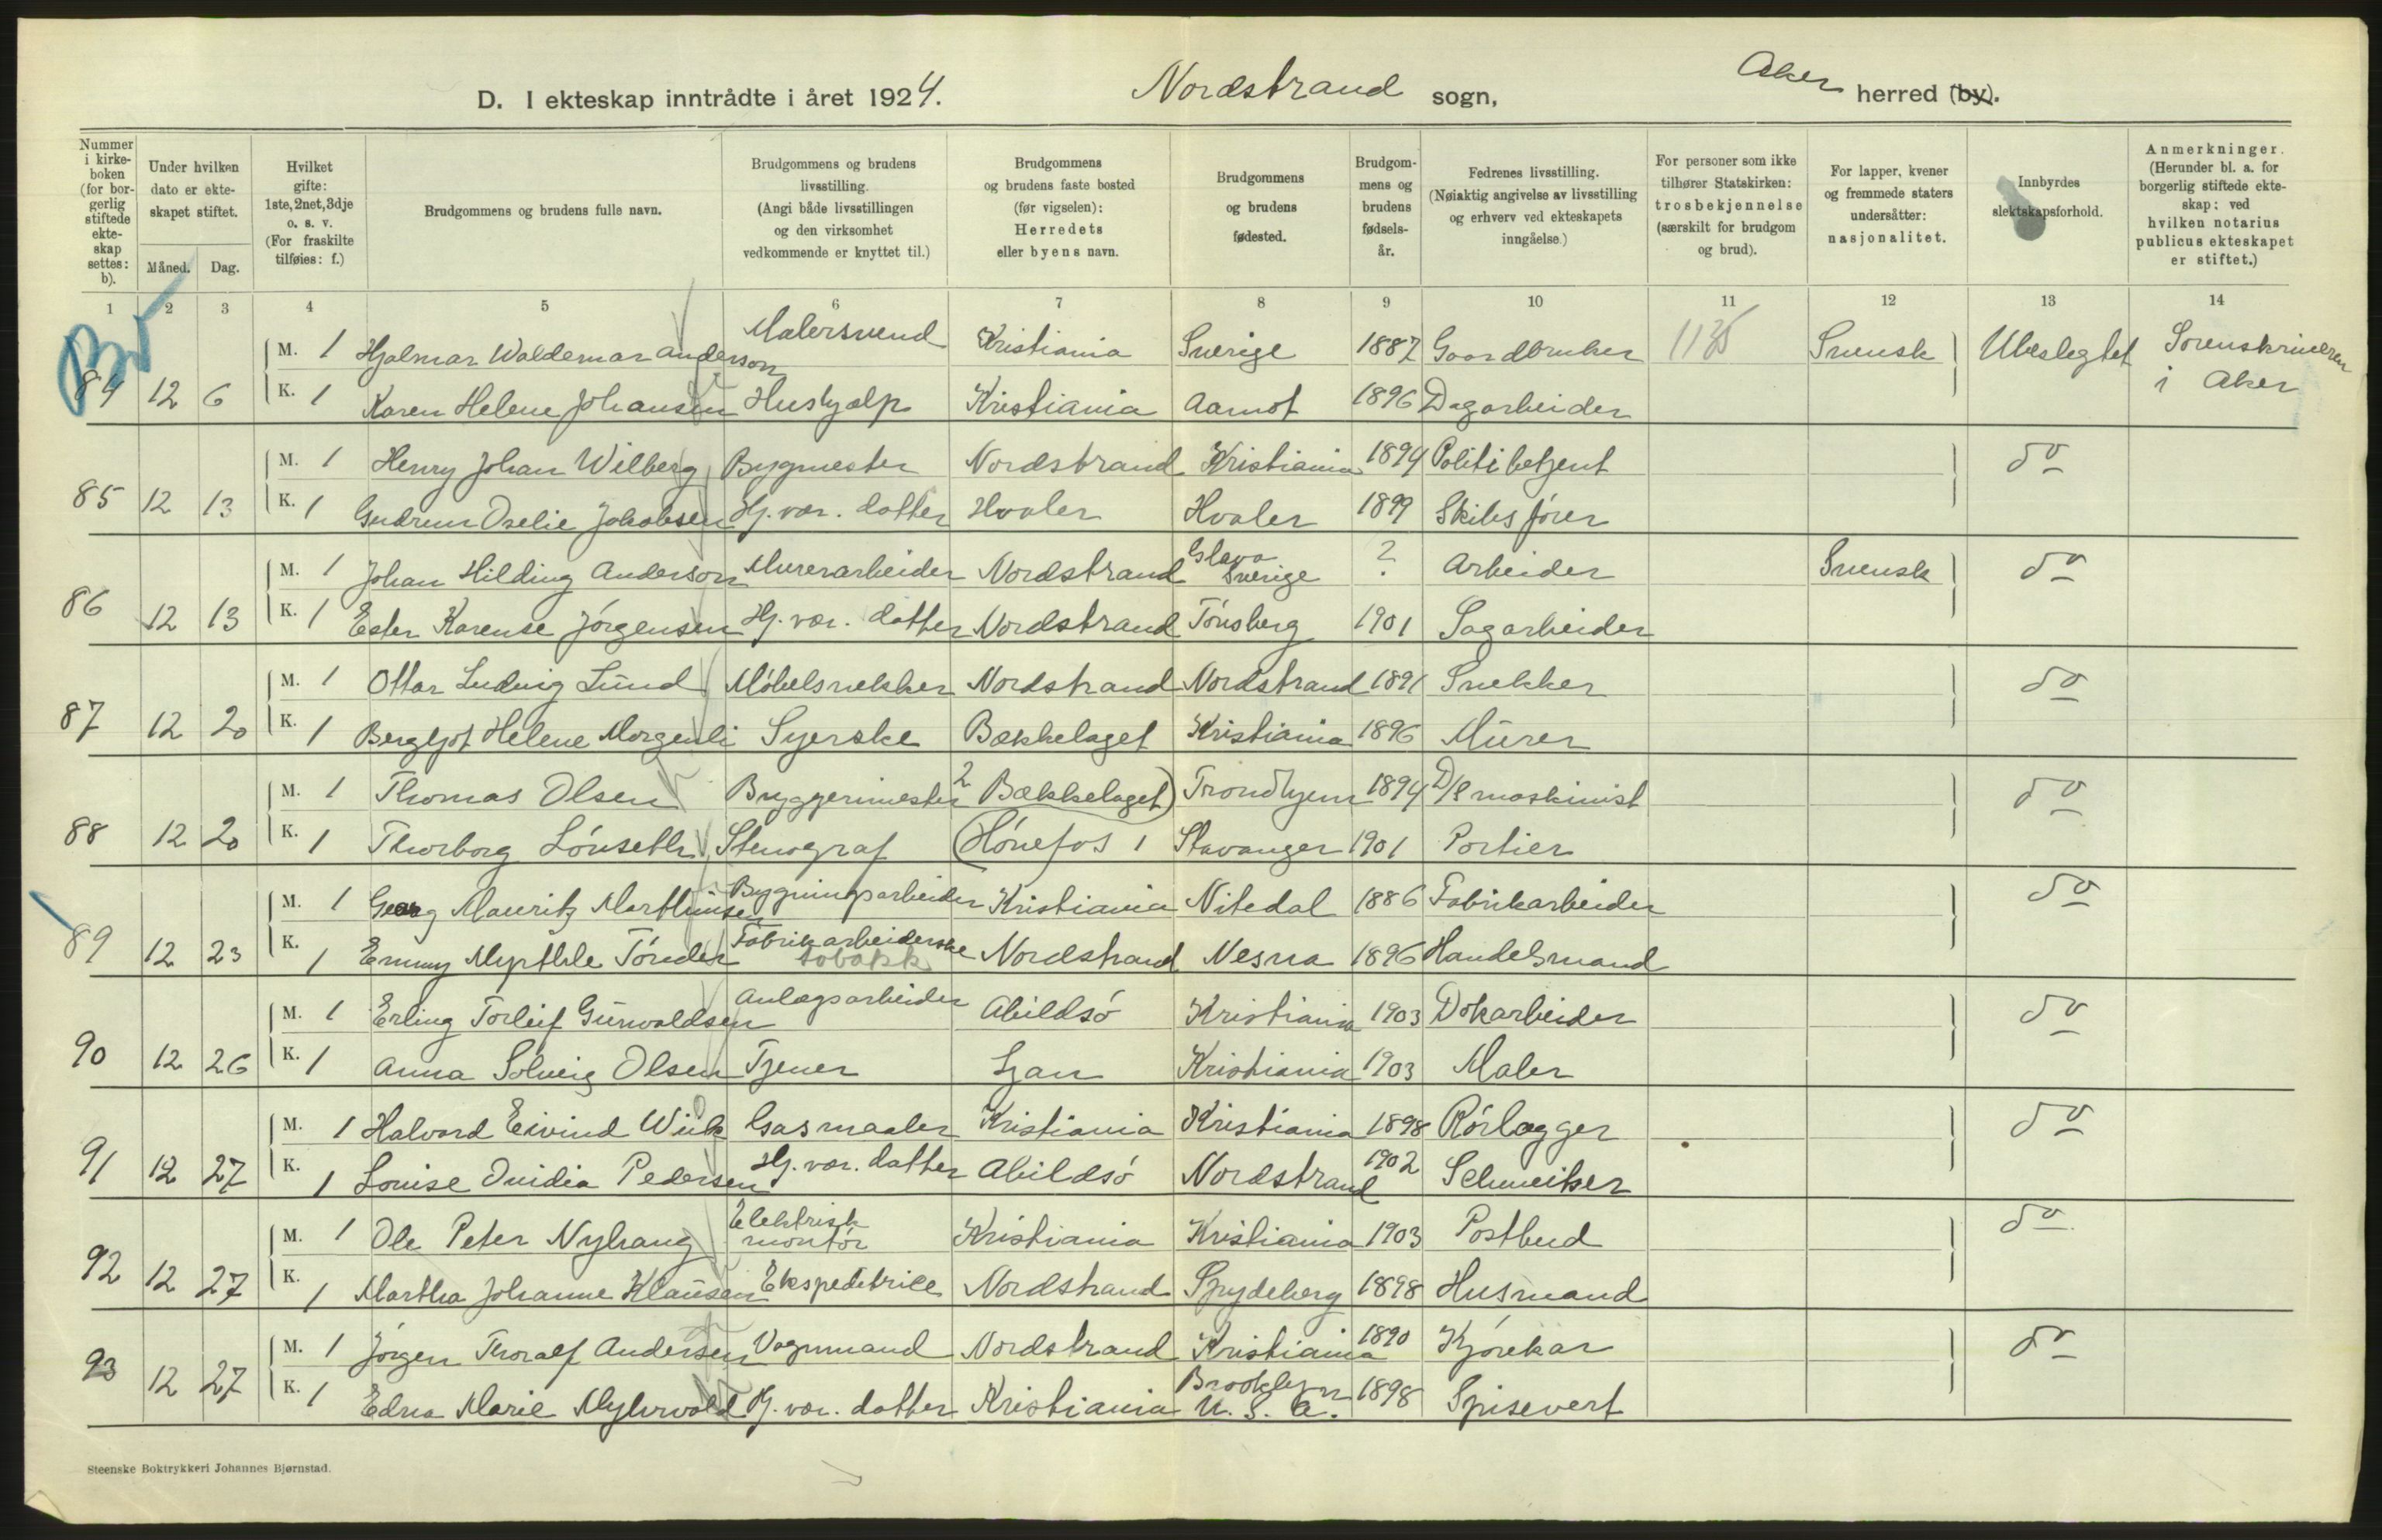 D. I ekteskap inntrådte i året 1924. Nordstrand sogn, Aker herred (by).
Nummer i kirkeboken (for borgerlig stiftede ekteskap settes: b).
Under hvilken dato er ekteskapet stiftet.
Måned. Dag.
Hvilket gifte: 1ste, 2net, 3dje o. s. v. (For fraskilte tilføies: f.)
Brudgommens og brudens fulle navn.
Brudgommens og brudens livsstilling. (Angi både livsstillingen og den virksomhet vedkommende er knyttet til.)
Brudgommens og brudens faste bosted (før vigselen): Herredets eller byens navn.
Brudgommens og brudens fødested.
Brudgommens og brudens fødselsår.
Fedrenes livsstilling. (Nøiaktig angivelse av livsstilling og erhverv ved ekteskapets inngåelse.)
For personer som ikke tilhører Statskirken: trosbekjennelse (særskilt for brudgom og brud).
For lapper, kvener og fremmede staters undersåtter: nasjonalitet.
Innbyrdes slektskapsforhold.
Anmerkninger. (Herunder bl. a. for borgerlig stiftede ekteskap: ved hvilken notarius publicus ekteskapet er stiftet.)
1 2 3 4 5 6 7 8 9 10 11 12 13 14
M. 1 Hjalmar Waldemar Anderson Malersvend Kristiania Sverige 1887 Gaardbruker Svensk Ubeslegtet Sorenskriveren
84 12 6 K. 1 Karen Helene Johansen Hushjælp Kristiania Aamot 1896 Dagarbeider i Aker
M. 1 Henry Johan Wilberg Bygmester Nordstrand Kristiania 1894 Politibetjent do
85 12 13 K. 1 Gudrun Ovelie Jakobsen Hj. vær. datter Hvaler Hvaler 1899 Skibsfører
M. 1 Johan Hilding Anderson Murerarbeider Nordstrand Glava Sverige ? Arbeider Svensk do
86 12 13 K. 1 Ester Karense Jørgensen Hj. vær. datter Nordstrand Tønsberg 1901 Sagarbeider
M. 1 Ottar Ludvig Lund Møbelsnekker Nordstrand Nordstrand 1891 Snekker do
87 12 20 K. 1 Bergljot Helene Morgenli Syerske Bækkelaget Kristiania 1896 Murer
M. 1 Thomas Olsen Bryggerimester 2 Bækkelaget) Trondhjem 1894 D/S maskinist do
88 12 20 K. 1 Thorborg Lønseth Stenograf (Hønefos 1 Stavanger 1901 Portier
M. 1 Georg Mauritz Marthinsen Bygningsarbeider Kristiania Nitedal 1886 Fabrikarbeider do
89 12 23 K. 1 Emmy Myrthle Tønder Fabrikarbeiderske tobakk Nordstrand Nesna 1896 Handelsmand
M. 1 Erling Torleif Gunvaldsen Anlægsarbeider Abildsø Kristiania 1903 Dokarbeider do
90 12 26 K. 1 Anna Solveig Olsen Tjener Ljan Kristiania 1903 Maler
M. 1 Halvard Eivind Wiik Gasmaaler Kristiania Kristiania 1898 Rørlægger do
91 12 27 K. 1 Louise Ovidia Pedersen Hj. vær. datter Abildsø Nordstrand 1902 Schweitser
M. 1 Ole Peter Nyhaug Elektrisk montør Kristiania Kristiania 1903 Postbud do
92 12 27 K. 1 Martha Johanne Klausen Ekspeditrice Nordstrand Spydeberg 1898 Husmand
M. 1 Jørgen Thoralf Andersen Vognmand Nordstrand Kristiania 1890 Kjørekar do
93 12 27 K. 1 Edna Marie Myhrvold Hj. vær. datter Kristiania Brooklyn U. S. A. 1898 Spisevert
Steenske Boktrykkeri Johannes Bjørnstad.